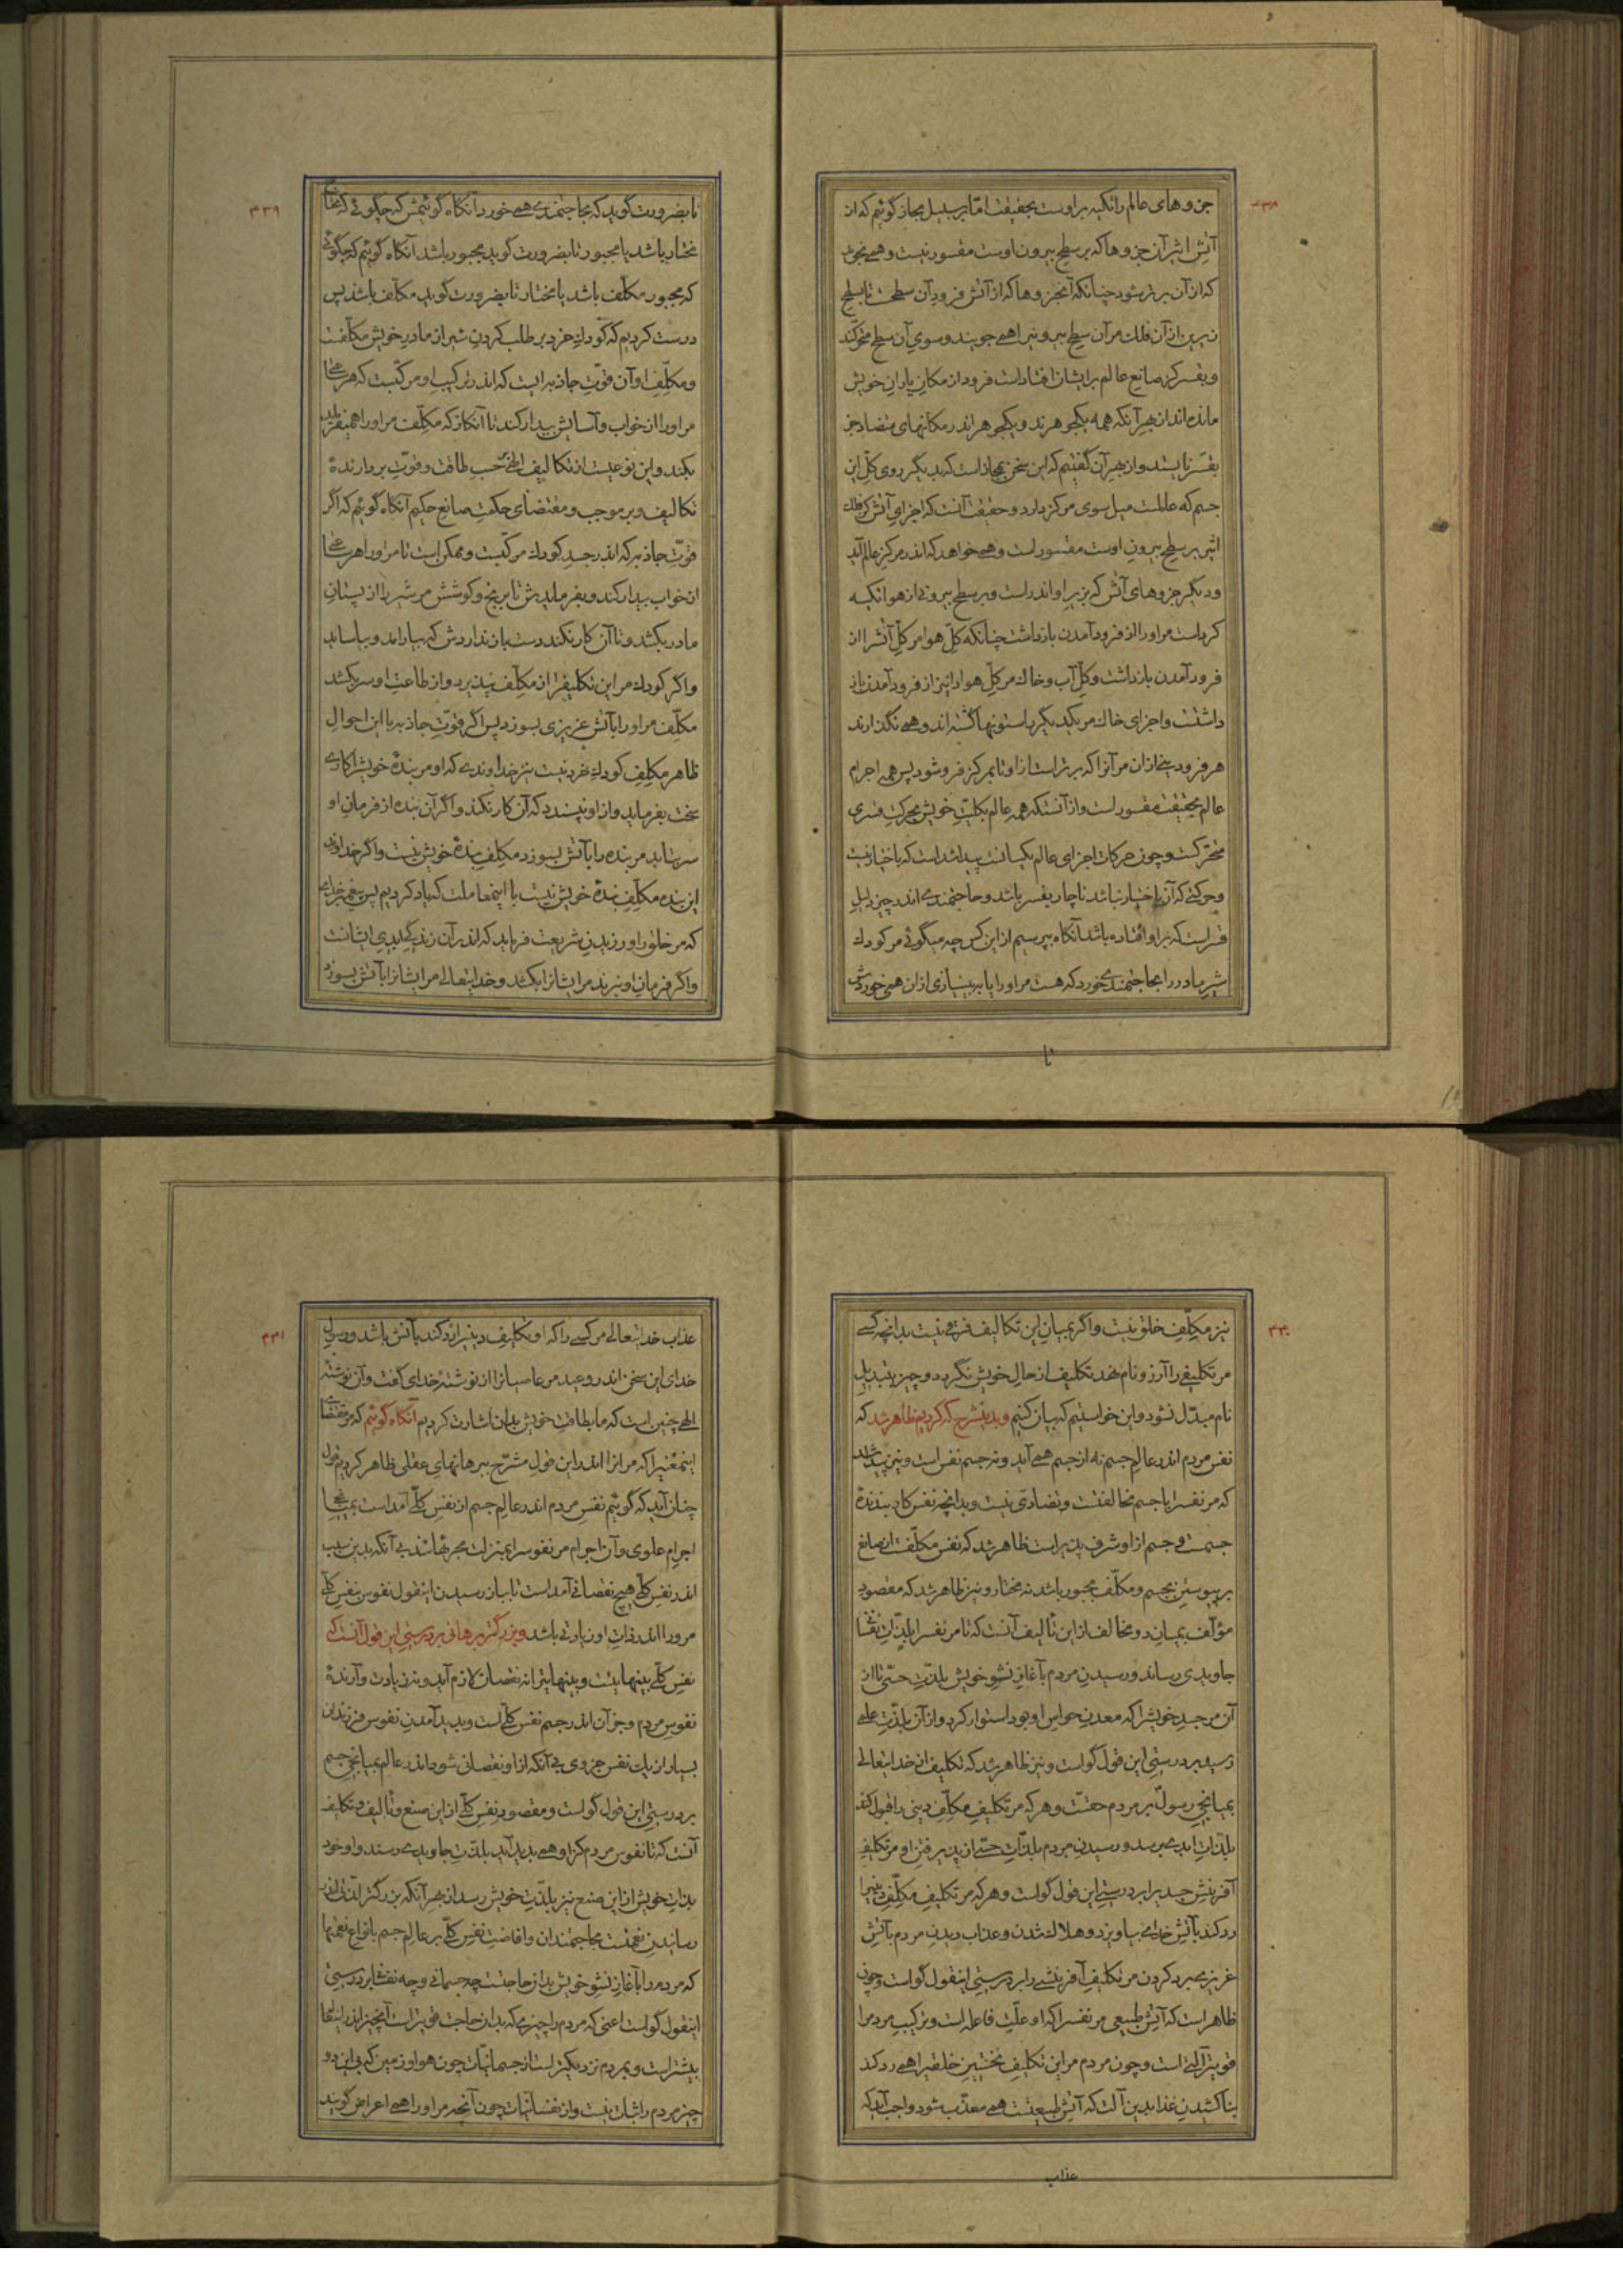 ۴۳۸
جزوهای عالم را تکیه بر اوست بحقیقت امّا بر سبیل مجاز گوئیم که از
آتش اثیر آن جزوها که بر سطح بیرون اوست مقسور نیست و همی نجوید
که از آن برتر شود چنانکه آنجزوها که از آتش فرود آن سطح است تا بسطح
زیرین از آن فلک مر آن سطح بیرونیرا همی جویند و سوی آن سطح متحرّکند
و بقسر کز صانع عالم بر ایشان افتاد است فرود از مکان یاران خویش
مانده‌اند از بهر آنکه همه یکجوهرند و یکجوهر اندر مکانهای متضاد جز
بقسر نایستد و از بهر آن گفتیم که این سخن بمجاز است که بدیگر روی کلّ این
جسم که عالمست میل سوی مرکز دارد و حقیقت آنست که اجزای آتش کز فلک
اثیر بر سطح بیرون اوست مقسور است و همی خواهد که اندر مرکز عالم آید
و دیگر جزوهای آتش که بزیر او اندر است و بر سطح بیرونی از هوا تکیه
کرد است مر او را از فرود آمدن باز داشت چنانکه کلّ هوا مر کلّ آتش را از
فرود آمدن باز داشت و کلّ آب و خاک مر کلّ هوا را نیز از فرود آمدن باز
داشتست و اجزای خاک مر یکدیگر را ستونها گشته‌اند و همی نگذارند
هر فرودینی از آن مر آنرا که برتر است از او تا بمرکز فرو شود پس همه اجرام
عالم بحقیقت مقسور است و از آنستکه همه عالم بکلیّت خویش بحرکت قسری
متحرّکست و چون حرکات اجزای عالم یکسانست پیدا شد است که باختیار نیست
و حرکتی که آن باختیار نباشد ناچار بقسر باشد و حاجتمندی اندر چیز دلیل
قسر است که بر او افتاده باشد آنگاه بپرسیم از این کس چه میگوئی مر کودک
شیر مادر را بحاجتمندی خورد که هست مر او را یا به بی‌نیازی از آن همی خوردش
تا
۴۳۹
تا بضرورت گوید که بحاجتمندی همی خورد آنگاه گوئیمش که چگوئی که محتاج
مختار باشد یا مجبور تا بضرورت گوید مجبور باشد آنگاه گوئیم که چگوئی
که مجبور مکلّف باشد یا مختار تا بضرورت گوید مکلّف باشد پس
درست کردیم که کودک خرد بر طلب کردن شیر از مادر خویش مکلّفست
و مکلّف او آن قوّت جاذبه است که اندر ترکیب او مرکّبست که هر ساعتی
مر او را از خواب و آسایش بیدار کند تا آنکار که مکلّف مر او را همیفرماید
بکند و این نوعیست از تکالیف الهی بر حسب طاقت و قوّت بردارندهٔ
تکالیف و بر موجب و مقتضای حکمت صانع حکیم آنگاه گوئیم که اگر
قوّت جاذبه که اندر جسد کودک مرکّبست و ممکن است تا مر او را هر ساعتی
از خواب بیدار کند و بفرمایدش تا برنج و کوشش مر شیر را از پستان
مادر بکشد و تا آن کار نکند دست باز نداردش که بیارامد و بیاساید
و اگر کودک مر این تکلیفرا از مکلّف نپذیرد و از طاعت او سر بکشد
مکلّف مر او را بآتش غریزی بسوزد پس اگر قوّت جاذبه با این احوال
ظاهر مکلّف کودک خرد نیست نیز خداوندی که او مر بندهٔ خویشرا کاری
سخت بفرماید و از او نپسندد که آن کار نکند و اگر آن بنده از فرمان او
سر بتابد مر بنده را بآتش بسوزد مکلّف بندهٔ خویش نیست و اگر خداوند
این بنده مکلّف بندهٔ خویش نیست با اینمعاملت که یاد کردیم پس پیغمبر خدای
که مر خلق را ورزیدن شریعت فرماید که اندر آن زندگی ابدی ایشانست
و اگر فرمان او نبرند مر ایشانرا بکشد و خدایتعالی مر ایشانرا بآتش بسوزد
۴۴۰
نیز مکلّف خلق نیست و اگر بمیان این تکالیف فرقی نیست بدانچه کسی
مر تکلیفی را آرزو نام نهد تکلیف از حال خویش نگردد و چیز بتبدیل
نام مبدّل نشود و این خواستیم که بیان کنیم و بدینشرح که کردیم ظاهر شد که
نفس مردم اندر عالم جسم نه از جسم همی آید و نه جسم نفس است و نیز پیدا شد
که مر نفس را با جسم مخالفت و تضادّی نیست و بدانچه نفس کاربندندهٔ
جسمست و جسم از او شرف پذیر است ظاهر شد که نفس مکلّفست از صانع
بر پیوستن بجسم و مکلّف مجبور باشد نه مختار و نیز ظاهر شد که مقصود
مؤلّف بمیان دو مخالف از این تألیف آنست که تا مر نفس را بلذّات نفسانی
جاویدی رساند و رسیدن مردم بآغاز نشو خویش بلذّت حسّی تا از
آن مر جسد خویشرا که معدن حواس او بود استوار کرد و از آن بلذّت علمی
رسید بر درستی این قول گواست و نیز ظاهر شد که تکلیف از خدایتعالی
بمیانجی رسول بر مردم حقست و هر که مر تکلیف مکلّف دینی را قبول کند
بلذّات ابدی برسد و رسیدن مردم بلذّات حسّی از پذیرفتن او مر تکلیف
آفرینش جسد را بر درستی این قول گواست و هر که مر تکلیف مکلّف دینی را
رد کند بآتش خدای بیاویزد و هلاک شدن و عذاب دیدن مردم بآتش
غریزی بردّ کردن مر تکلیف آفرینشی را بر درستی اینقول گواست و چون
ظاهر است که آتش طبیعی مر نفس را که او علّت فاعله است و ترکیب مردم را
قویتر آلتی است و چون مردم مر این تکلیف نخستین خلقی را همی رد کند
بناکشیدن غذا بدین آلت که آتش طبیعتست همی معذّب شود واجب آید که
عذاب
۴۴۱
عذاب خدایتعالی مر کسی را که او تکلیف دینی را رد کند بآتش باشد و رسول
خدای این سخن اندر وعید مر عاصیانرا از نوشتهٔ خدای گفت و آن نوشته
الهی چنین است که ما بطاقت خویش بدان اشارت کردیم آنگاه گوئیم که مر مقتضای
اینمعنیرا که مر آنرا اندر این قول مشرّح ببرهانهای عقلی ظاهر کردیم قول
چنان آید که گوئیم نفس مردم اندر عالم جسم از نفس کلّی آمد است بمیانجی
اجرام علوی و آن اجرام مر نفوس را بمنزلت مجریهااند بی آنکه بدین سبب
اندر نفس کلّی هیچ نقصانی آمد است تا بباز رسیدن اینقول نفوس بنفس کلّی
مرورا اندر ذات او زیادتی باشد و بزرگتر برهانی بر درستی این قول آنست که
نفس کلّی بینهایتست و بینهایترا نه نقصان لازم آید و نه زیادت و آرندهٔ
نفوس مردم و جز آن اندر جسم نفس کلّی است و پدید آمدن نفوس فرزندان
بسیار از یک نفس جزوی بی آنکه از او نقصانی شود اندر عالم بمیانجی جسم
بر درستی این قول گواست و مقصود نفس کلّی از این صنع و تألیف و تکلیف
آنست که تا نفوس مردم کز او همی پدید آید بلذّت جاویدی رسند و او خود
بذات خویش از این صنع نیز بلذّت خویش رسد از بهر آنکه بزرگتر لذّتی اندر
رسانیدن نعمتست بحاجتمندان و افاضت نفس کلّی بر عالم جسم بانواع نعمتها
که مردم را بآغاز نشو خویش بدان حاجتست چه جسمانی و چه نفسانی بر درستی
اینقول گواست اعنی که مردم را چیزی که بدان حاجت قویتر است آنچیز اندر اینعالم
بیشتر است و بمردم نزدیکتر است از جسمانیّات چون هوا و زمین که بی این دو
چیز مردم را ثبات نیست و از نفسانیّات چون آنچه مر او را همی اعراض گویند